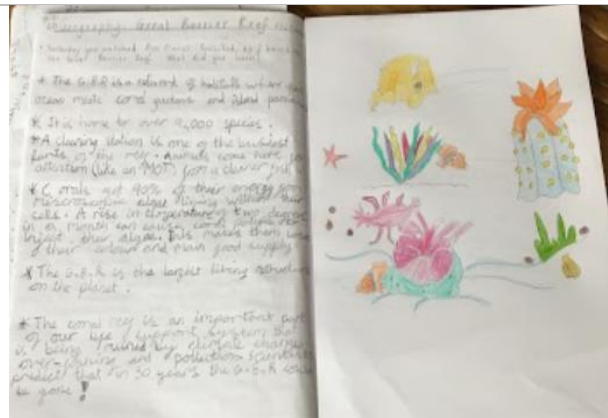 Geography Great Barrier Reef
Yesterday you watched
the Great Barrier Reef. What did you learn?
* The G.B.R is a network of habitats where
ocean meets coral gardens and island
* It is home to over 9,000 species.
* A cleaning station is one of the busiest
parts of the reef. Animals come here for
attention (like an MOT) from a cleaner fish
* Corals get 90% of their energy from
microscopic algae living within their
cells. A rise in temperature of two degrees
in a month can cause coral
their algae. This makes them lose
their colour and main food supply
* The G.B.R is the largest living structure
on the planet.
* The coral reef is an important part
of our life support system that
is being ruined by climate change
over-fishing and pollution. Scientists
predict that in 30 years the G.B.R could
be gone!